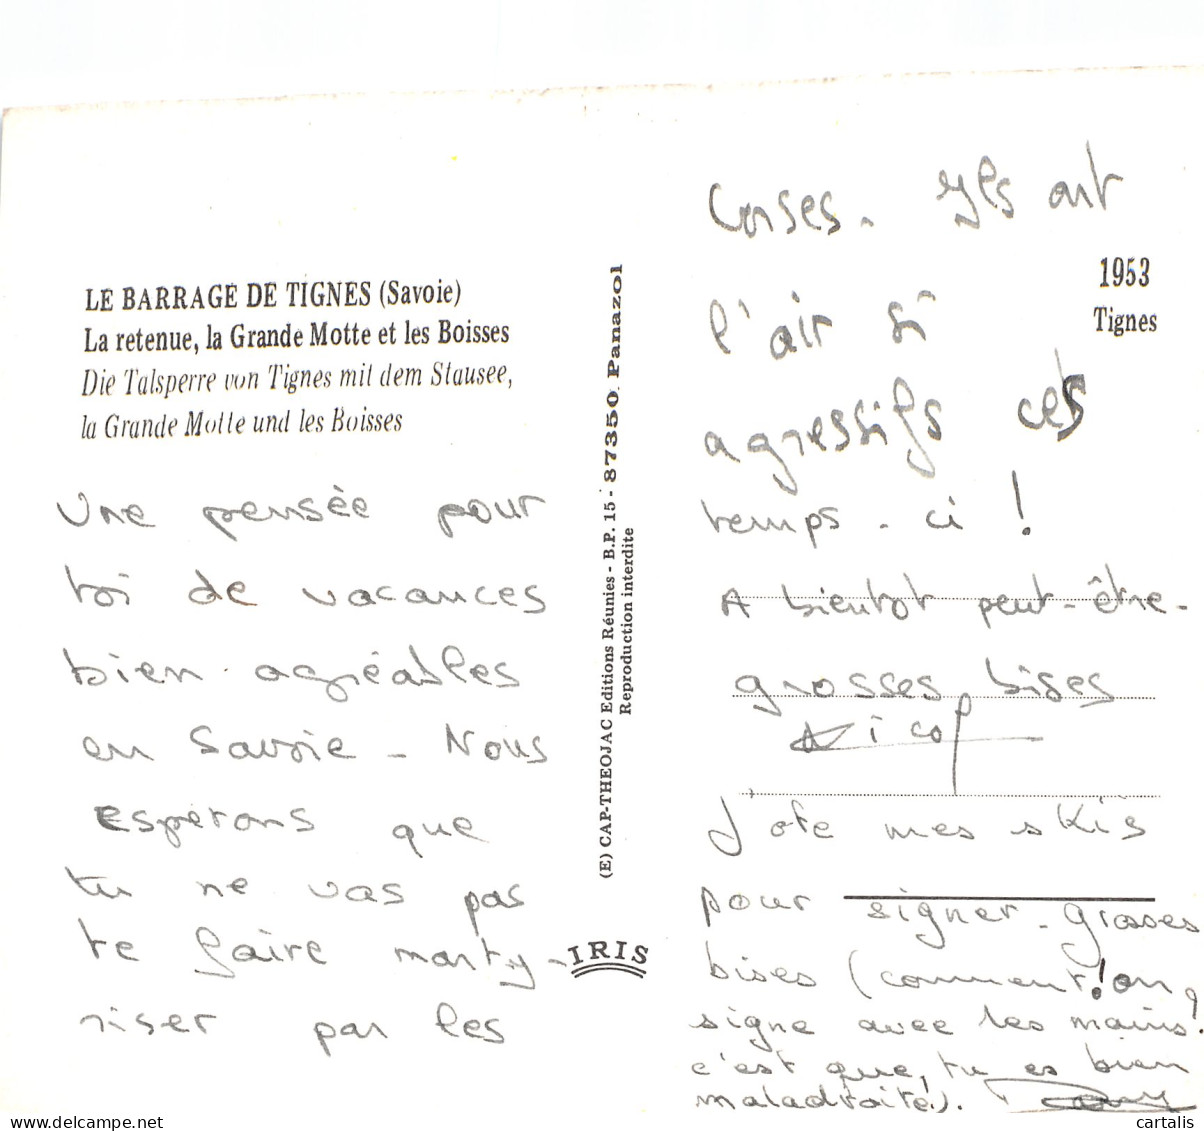 LE BARRAGE DE TIGNES (Savoie)
La retenue, la Grande Motte et les Boisses
Die Talsperre von Tignes mit dem Stausee,
la Grande Motte und les Boisses
Une pensée pour
toi de vacances
bien agréables
en Savoie - Nous
espérons que
tu ne vas pas
te faire marty-
riser par les
(E) CAP-THEOJAC Editions Réunies - B.P. 15 - 87350 Panazol
Reproduction interdite
IRIS
1953
Tignes
Corses. Ils ont
l'air si
agressifs ces
temps-ci !
A bientot peut-être.
grosses bises
Nico
J'ote mes skis
pour signer. grosses
bises (comment! on
signe avec les mains!
c'est que, tu es bien
maladroite!).
cartalis